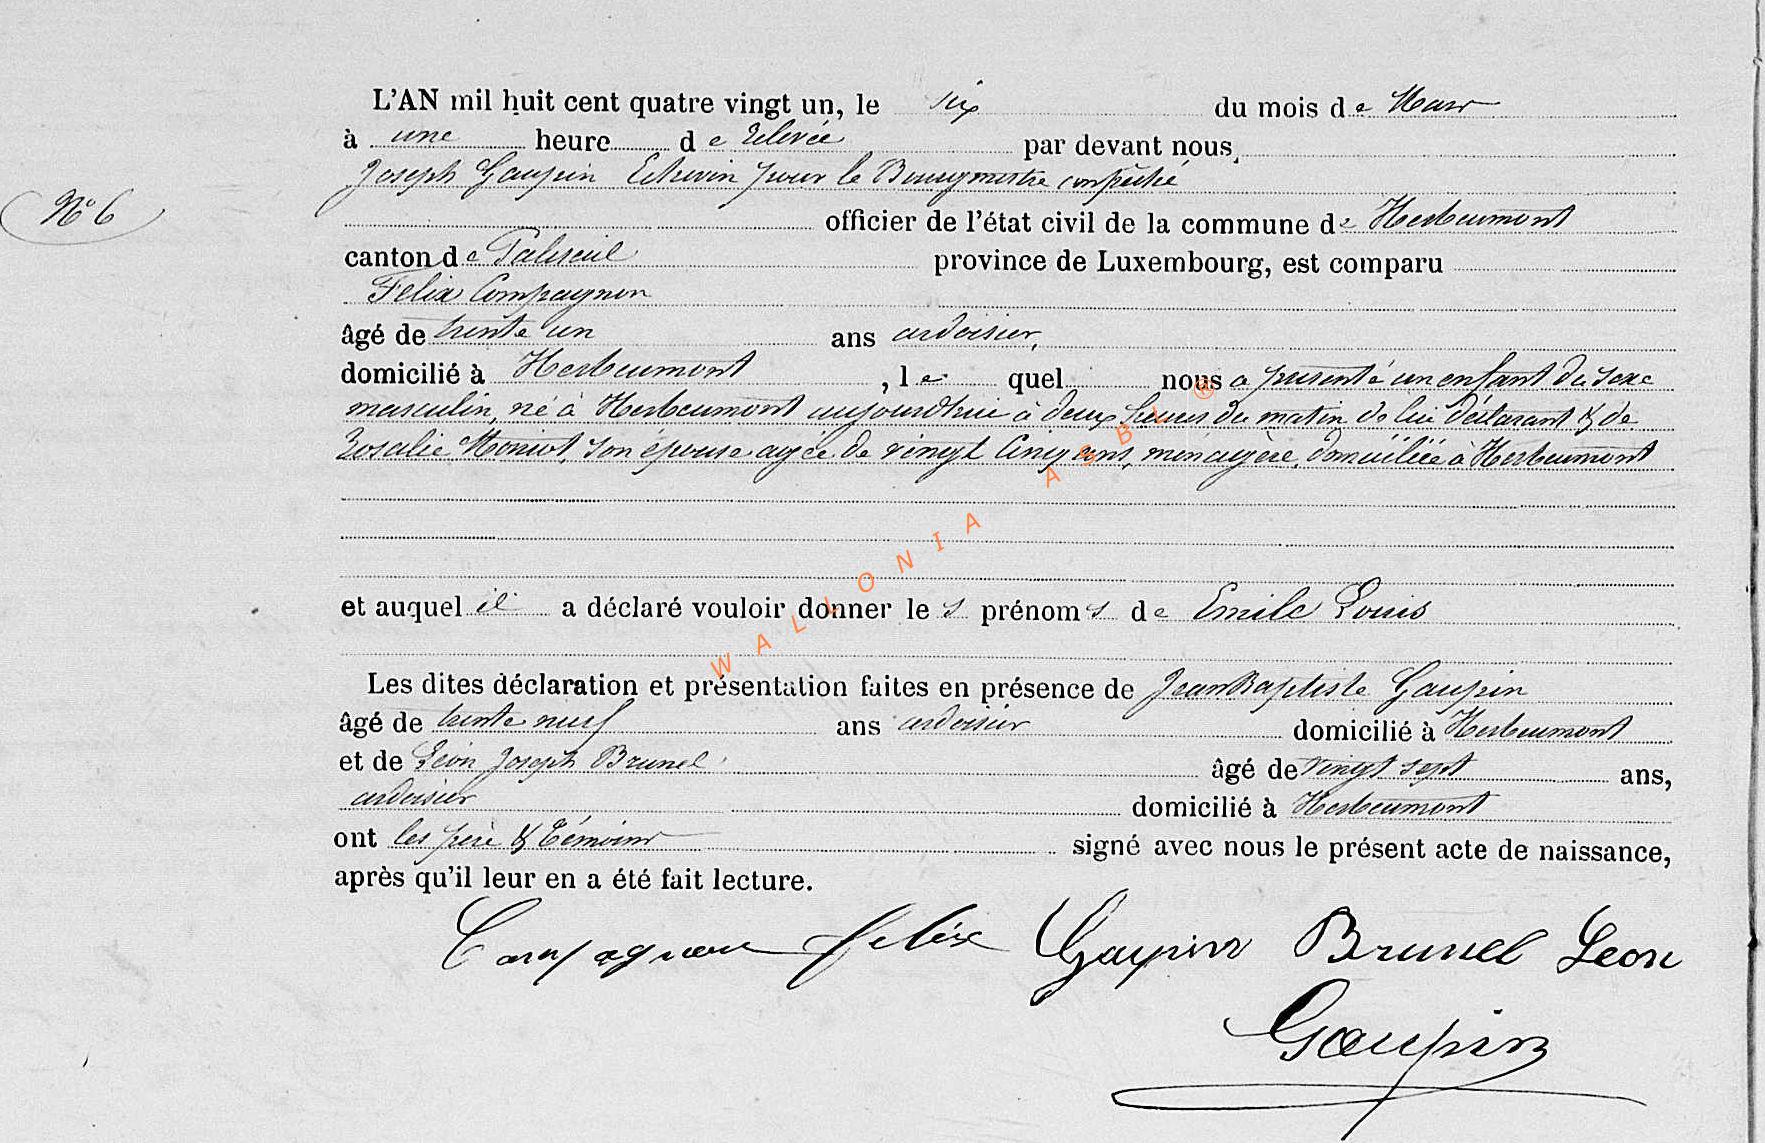 L'AN mil huit cent quatre vingt un, le six du mois de Mars
à une heure de relevée par devant nous,
Joseph Gaupin Echevin pour le Bourgmestre empêché
N° 6
officier de l'état civil de la commune de Herbeumont
canton de Paliseul province de Luxembourg, est comparu
Felix Compagnon
âgé de trente un ans ardoisier,
domicilié à Herbeumont, le quel nous a presenté un enfant du sexe
masculin, né à Herbeumont aujourdhui à deux heures du matin de lui déclarant & de
Rosalie Moniot, son épouse agée de vingt cinq ans, ménagère, domiciliée à Herbeumont
et auquel il a déclaré vouloir donner le s prénom s de Emile Louis
Les dites déclaration et présentation faites en présence de Jean Baptiste Gaupin
âgé de trente neuf ans ardoisier domicilié à Herbeumont
et de Léon Joseph Brunel âgé de vingt sept ans,
ardoisier domicilié à Herbeumont
ont les père & témoins signé avec nous le présent acte de naissance,
après qu'il leur en a été fait lecture.
Compagnon felix Gaupin Brunel Leon
Gaupin
WALLONIA ASBL ®